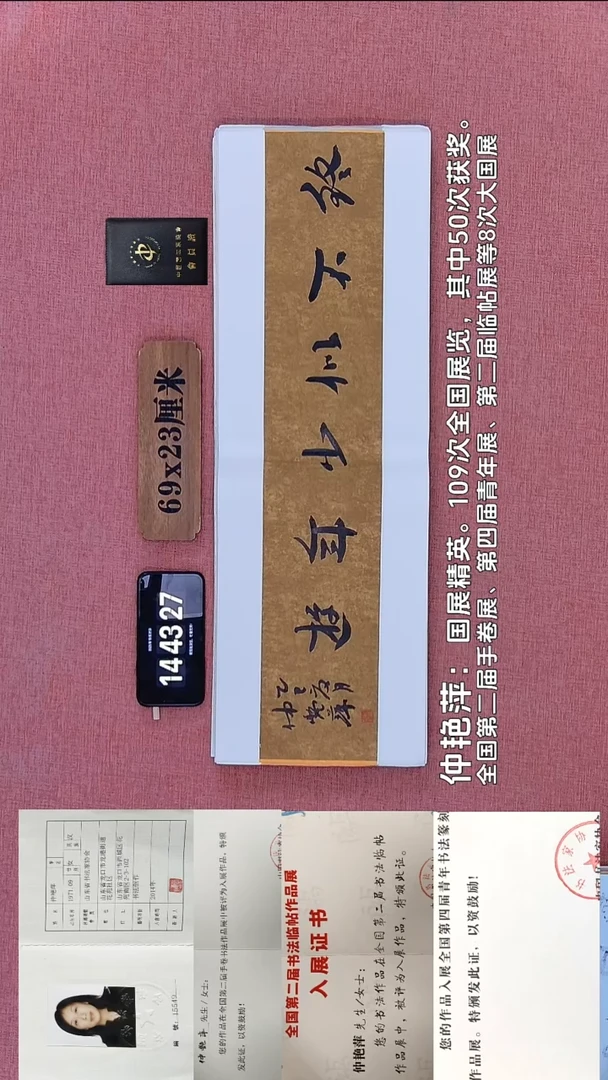 中国书法家协会
会员证
69x23厘米
14 43 27
终不似少年游
乙巳夏月
仲艳萍
仲艳萍：国展精英。109次全国展览，其中50次获奖。
全国第二届手卷展、第四届青年展、第二届临帖展等8次大国展
1971.09
山东省书法家协会
仲艳萍 先生/女士：
您的作品在全国第二届手卷书法作品展中被评为入展作品，特颁
发此证，以资鼓励！
全国第二届书法临帖作品展
入展证书
仲艳萍 先生/女士：
您的书法作品在全国第二届书法临帖
作品展中，被评为入展作品，特颁此证。
您的作品入展全国第四届青年书法篆刻
作品展。特颁发此证，以资鼓励！